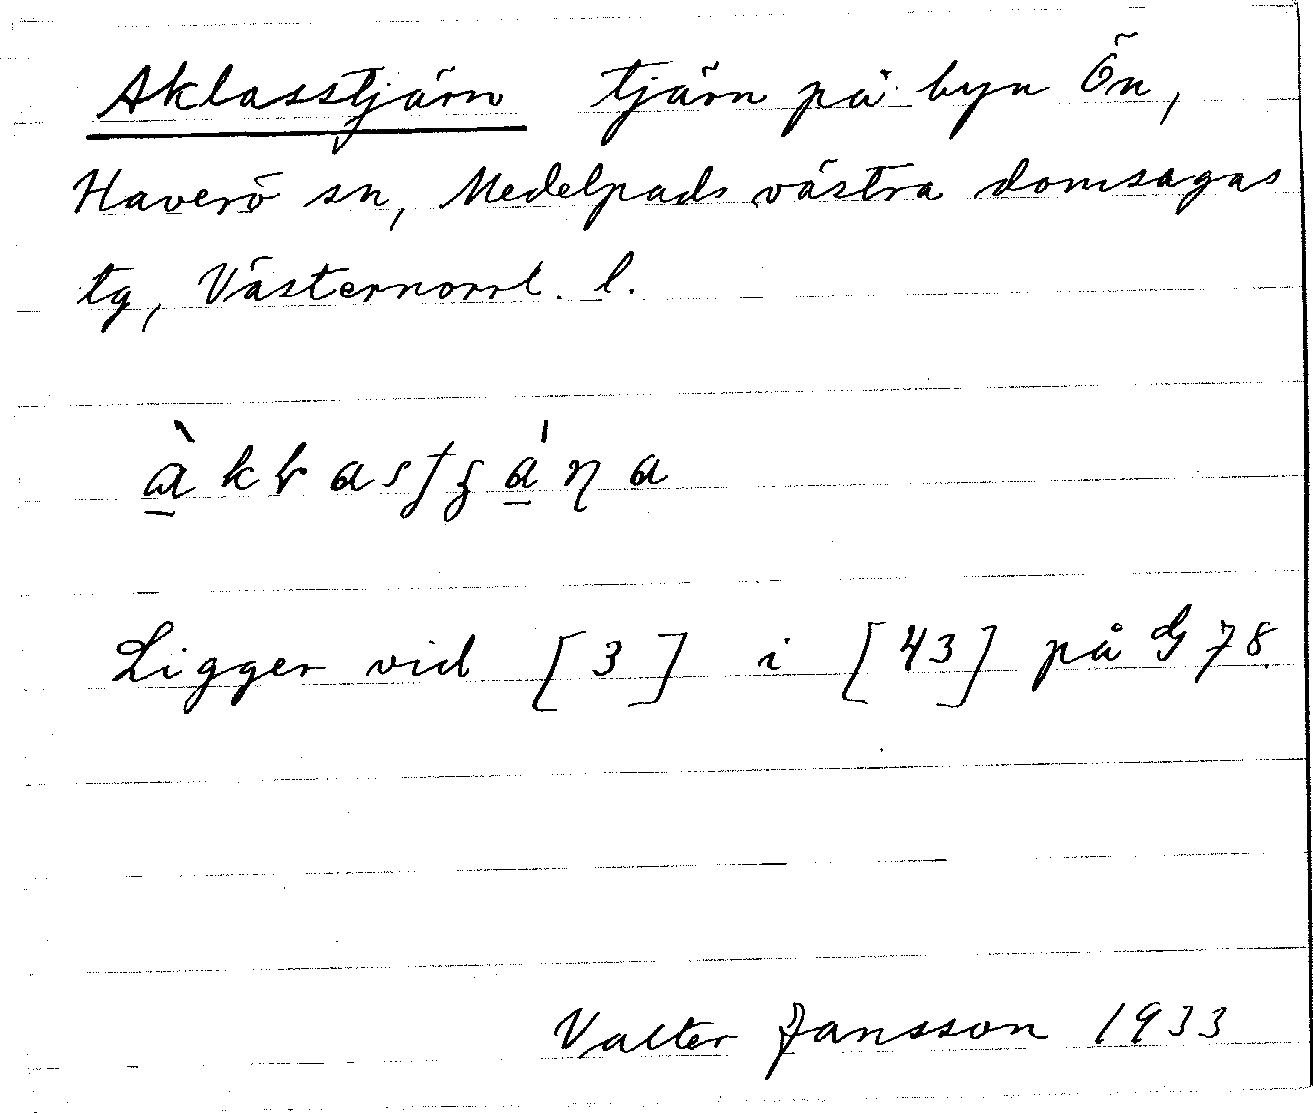 Aklasstjärn tjärn på byn Ön,
Haverö sn, Medelpads västra domsagas
tg, Västernorrl. l.
Ligger vid [3] i [43] på G 78.
Valter Jansson 1933